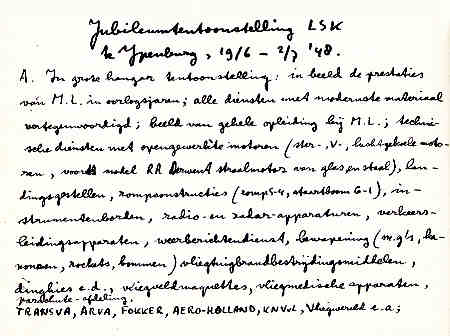 Jubileumtentoonstelling LSK
te Ypenburg, 19/6 - 2/7 '48.
A. In grote hangar tentoonstelling: in beeld de prestaties
van M.L. in oorlogsjaren; alle diensten met modernste materiaal
vertegenwoordigd; beeld van gehele opleiding bij M.L.; techni-
sche diensten met opengewerkte motoren (ster-, V-, luchtgekoelde moto-
ren, model RR Derwent straalmotor van glas en staal), lan-
dingsgestellen, rompconstructies (romp S-4, staartboom G-1), in-
strumentenborden, radio- en radar-apparaturen, verkeers-
leidingsapparaten, weerberichtendienst, bewapening (m.g's, ka-
nonnen, rockets, bommen) vliegtuigbrandbestrijdingsmiddelen,
dinghies e.d., vliegveldmaquettes, vliegmedische apparaten,
parachute-afdeling.
TRANSVA, ARVA, FOKKER, AERO-HOLLAND, KNVvL, Vliegwereld e.a;